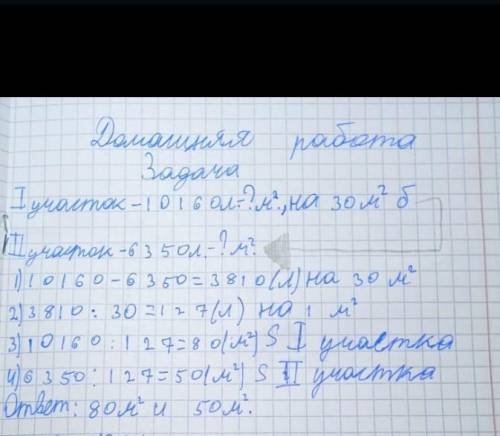 Домашняя работа
Задача
I участок - 10160л - ? м², на 30 м² б
II участок - 6350л - ? м²
1) 10160 - 6350 = 3810 (л) на 30 м²
2) 3810 : 30 = 127 (л) на 1 м²
3) 10160 : 127 = 80 (м²) S I участка
4) 6350 : 127 = 50 (м²) S II участка
Ответ: 80 м² и 50 м².